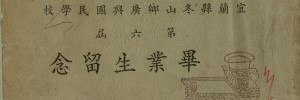 宜蘭縣冬山鄉廣興國民學校
第六屆
畢業生留念